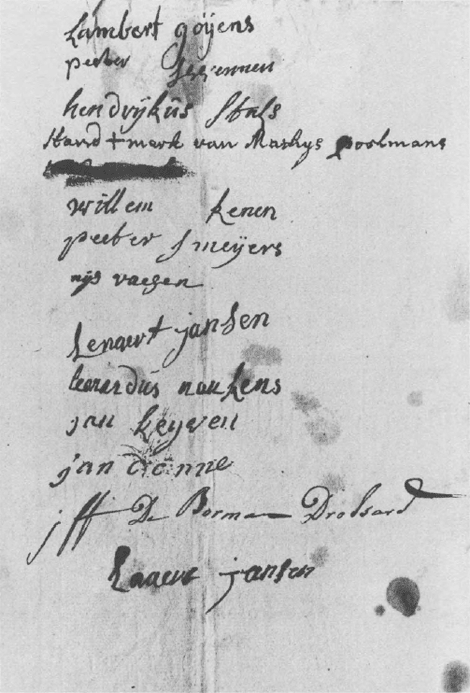 Lambert goijens
peeter
hendrijkus stals
Hand + merk van Mathys poelmans
willem kenen
peeter smeijers
nijs vaesen
Lenaert jansen
leonardus noukens
jan keyven
jan
jff De Borman Drossard
Lnaert jansen